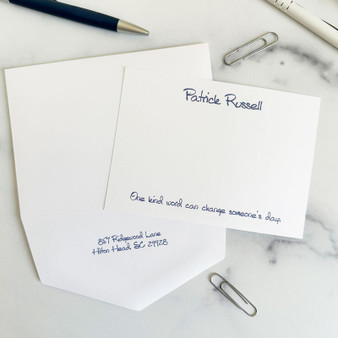 Patrick Russell
One kind word can change someone's day.
867 Ridgewood Lane
Hilton Head, SC 29928